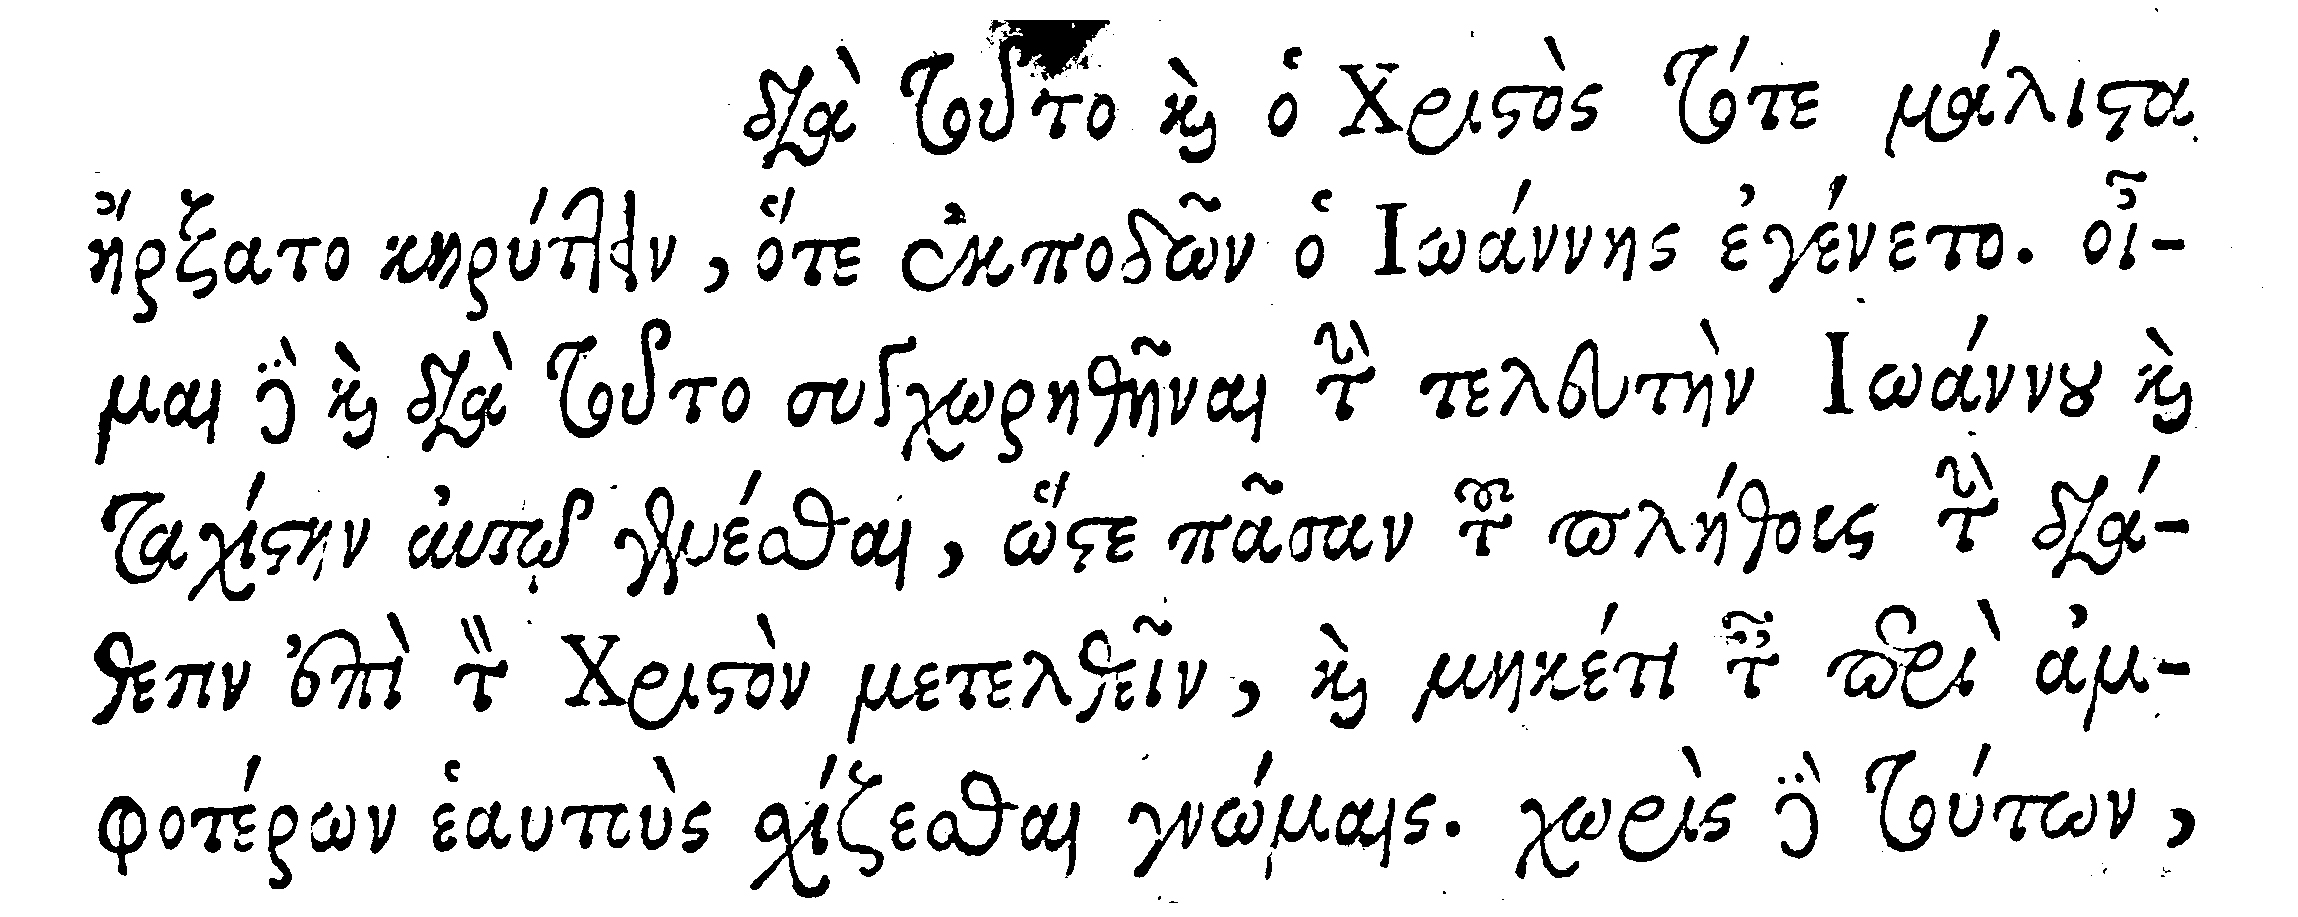 διὰ τοῦτο καὶ ὁ Χριστὸς τότε μάλιστα
ἤρξατο κηρύττειν, ὅτε ἐκποδῶν ὁ Ιωάννης ἐγένετο. οἶ-
μαι δὲ καὶ διὰ τοῦτο συγχωρηθῆναι τὴν τελευτὴν Ιωάννου καὶ
ταχίστην αὐτοῦ γενέσθαι, ὥστε πᾶσαν τοῦ πλήθους τὴν διά-
θεσιν ἐπὶ τὸν Χριστὸν μετελθεῖν, καὶ μηκέτι ταῖς περὶ ἀμ-
φοτέρων ἑαυτοὺς σχίζεσθαι γνώμαις. χωρὶς δὲ τούτων,